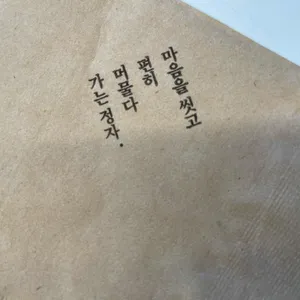 마음을 씻고
편히
머물다
가는 정자.